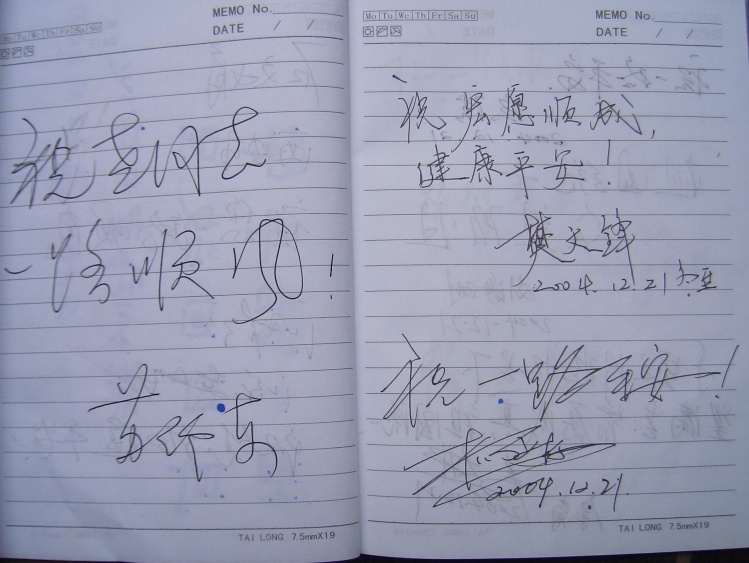 MEMO No.
Mo Tu We Th Fr Sa Su
DATE / /
祝
一路顺风!
TAI LONG 7.5mmX19
Mo Tu We Th Fr Sa Su
MEMO No.
DATE / /
祝宏愿顺成,
健康平安!
樊文锋
2004.12.21 冬至
祝一路平安!
2004.12.21.
TAI LONG 7.5mmX19